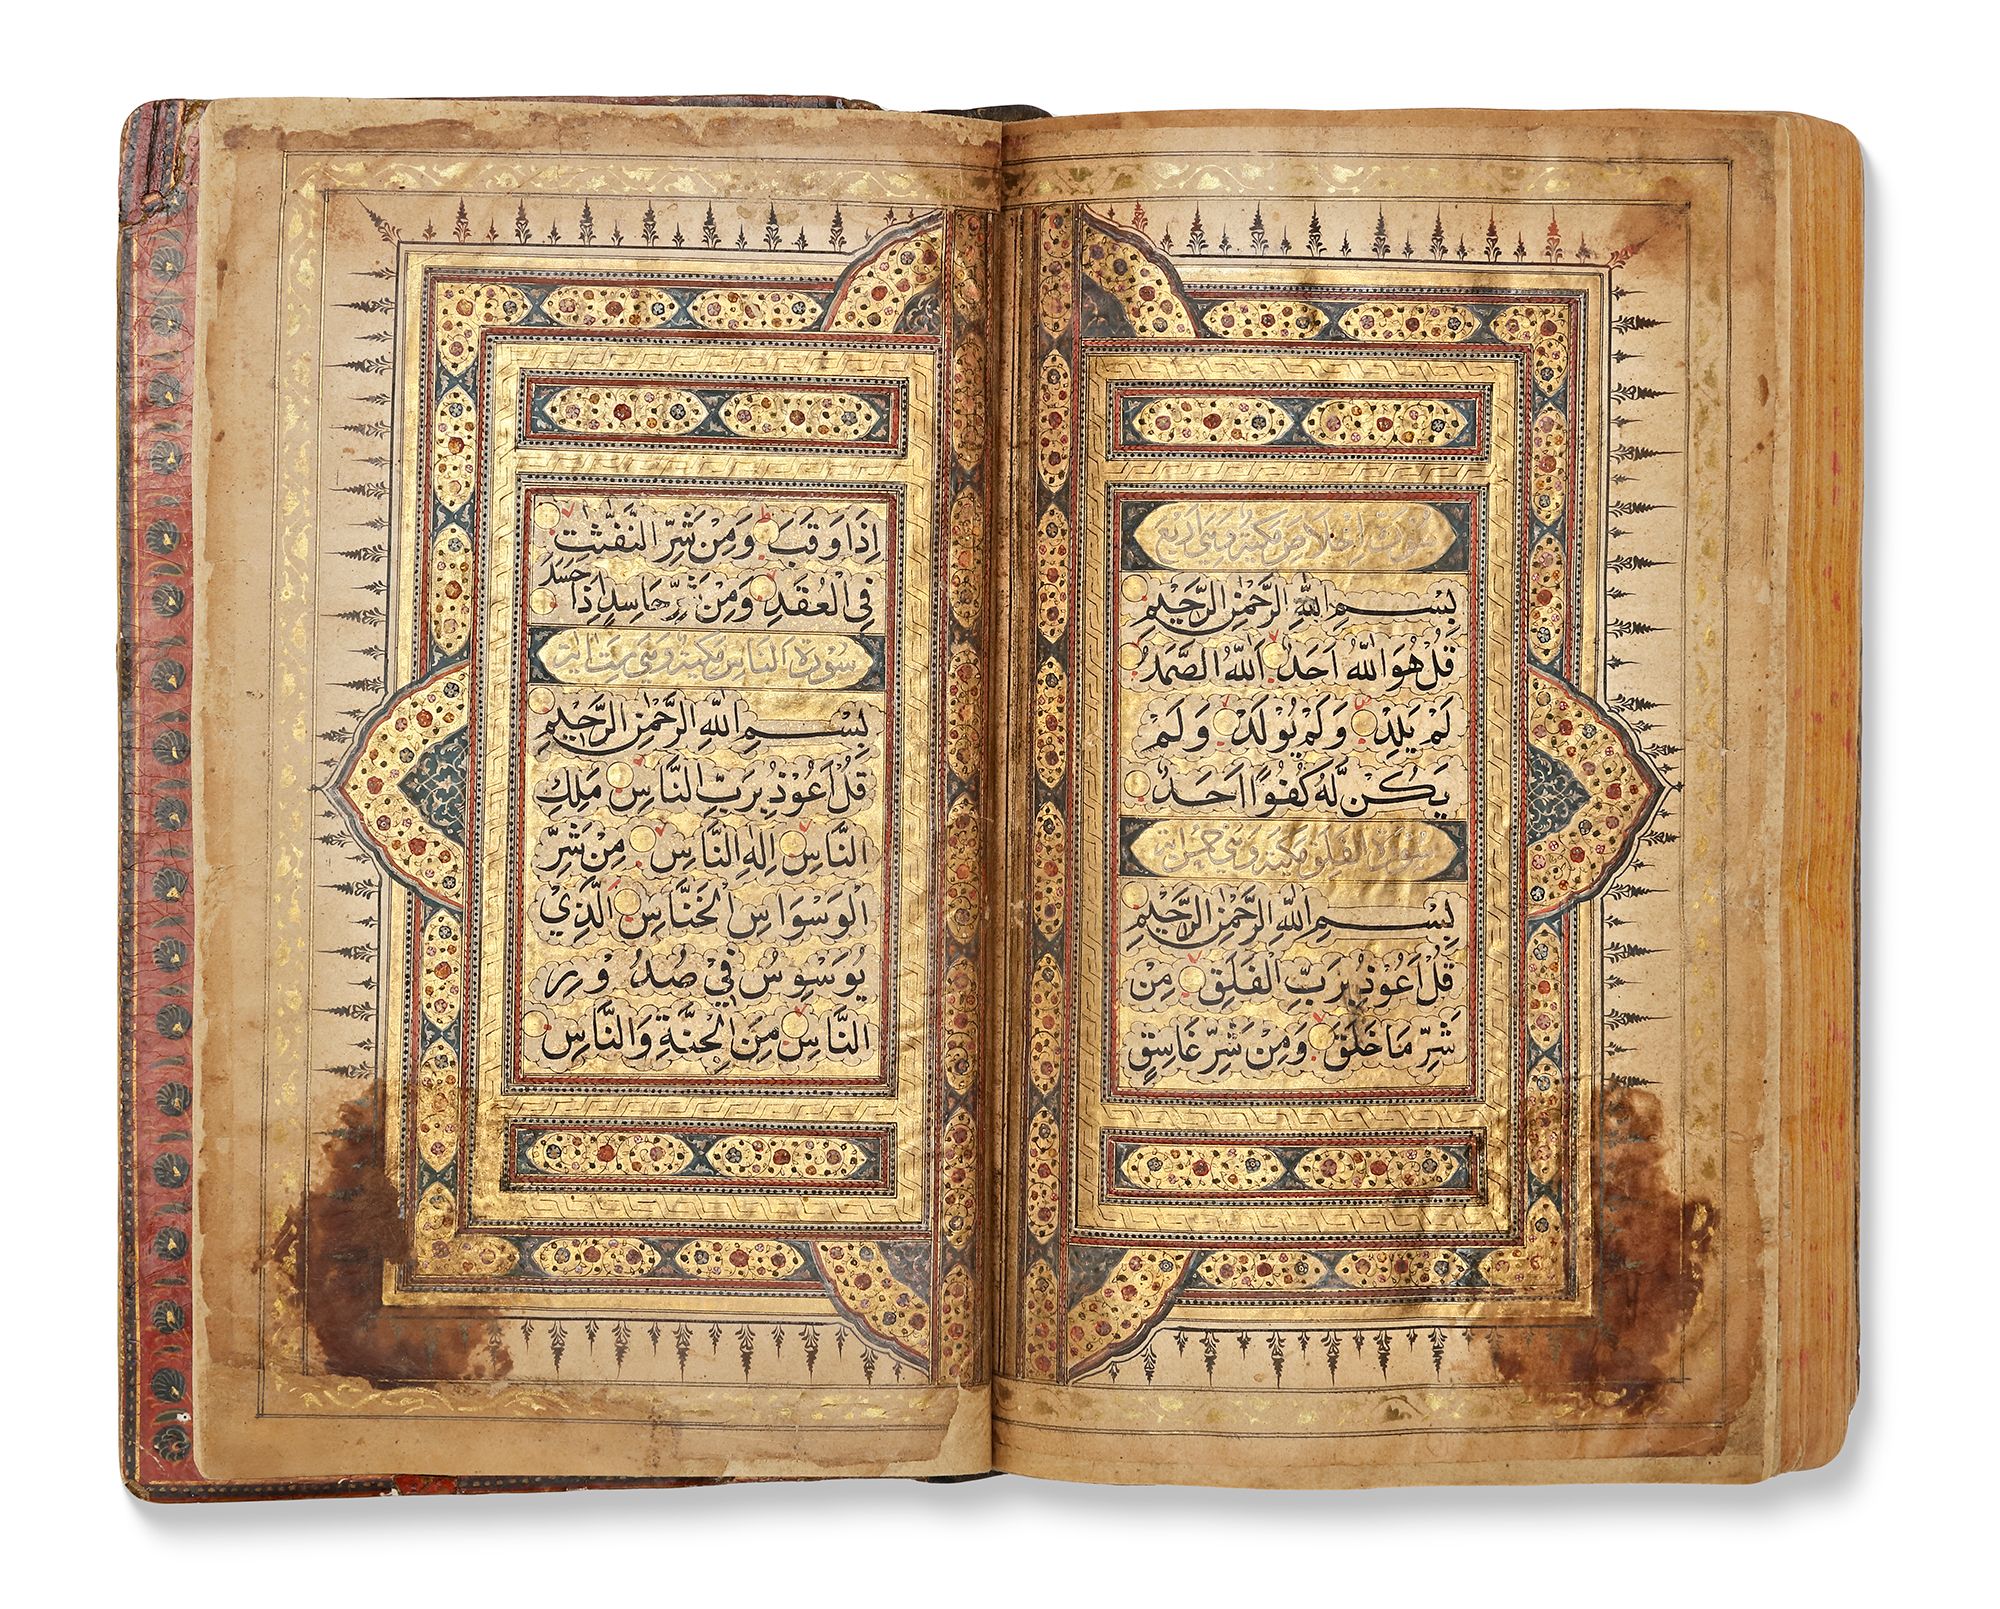 سورت اخلاص مكية وهي اربع
بِسْمِ اللّٰهِ الرَّحْمٰنِ الرَّحِيْمِ
قُلْ هُوَ اللّٰهُ اَحَدٌ اَللّٰهُ الصَّمَدُ
لَمْ يَلِدْ وَلَمْ يُوْلَدْ وَلَمْ
يَكُنْ لَّهٗ كُفُوًا اَحَدٌ
سورة الفلق مكية وهي خمس اية
بِسْمِ اللّٰهِ الرَّحْمٰنِ الرَّحِيْمِ
قُلْ اَعُوْذُ بِرَبِّ الْفَلَقِ مِنْ
شَرِّ مَا خَلَقَ وَمِنْ شَرِّ غَاسِقٍ
اِذَا وَقَبَ وَمِنْ شَرِّ النَّفّٰثٰتِ
فِي الْعُقَدِ وَمِنْ شَرِّ حَاسِدٍ اِذَا حَسَدَ
سورة الناس مكية وهي ست اية
بِسْمِ اللّٰهِ الرَّحْمٰنِ الرَّحِيْمِ
قُلْ اَعُوْذُ بِرَبِّ النَّاسِ مَلِكِ
النَّاسِ اِلٰهِ النَّاسِ مِنْ شَرِّ
الْوَسْوَاسِ الْخَنَّاسِ الَّذِيْ
يُوَسْوِسُ فِيْ صُدُوْرِ
النَّاسِ مِنَ الْجِنَّةِ وَالنَّاسِ